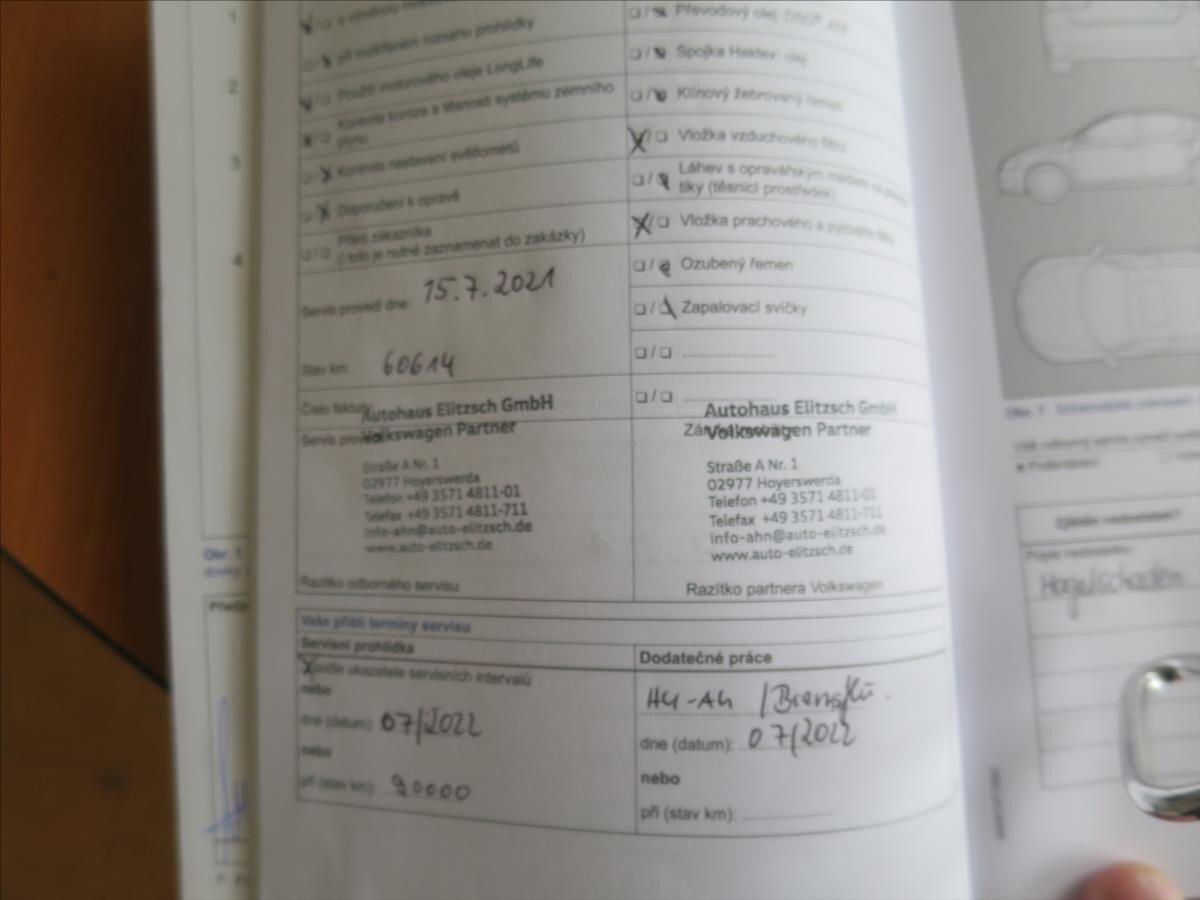 1
2
3
4
při rozšířeném rozsahu prohlídky
Použití motorového oleje LongLife
Kontrola koroze a těsnosti systému zemního
plynu
Kontrola nastavení světlometů
Doporučení k opravě
Přání zákazníka
(i toto je nutné zaznamenat do zakázky)
Servis provedl dne: 15.7.2021
Stav km: 60614
Číslo faktury
Autohaus Elitzsch GmbH
Volkswagen Partner
Straße A Nr. 1
02977 Hoyerswerda
Telefon +49 3571 4811-01
Telefax +49 3571 4811-711
info-ahn@auto-elitzsch.de
www.auto-elitzsch.de
Razítko odborného servisu
Převodový olej: DSG®
Spojka Haldex: olej
Klínový žebrovaný řemen
Vložka vzduchového filtru
Láhev s opravářským
tiky (těsnicí prostředek)
Vložka prachového a pylového filtru
Ozubený řemen
Zapalovací svíčky
Autohaus Elitzsch GmbH
Volkswagen Partner
Straße A Nr. 1
02977 Hoyerswerda
Telefon +49 3571 4811-01
Telefax +49 3571 4811-711
info-ahn@auto-elitzsch.de
www.auto-elitzsch.de
Razítko partnera Volkswagen
Vaše příští termíny servisu
Servisní prohlídka
podle ukazatele servisních intervalů
nebo
dne (datum): 07/2022
nebo
při (stav km): 90000
Dodatečné práce
dne (datum): 07/2022
nebo
při (stav km):
Obr. 1
Obr. 7
Hagelschaden